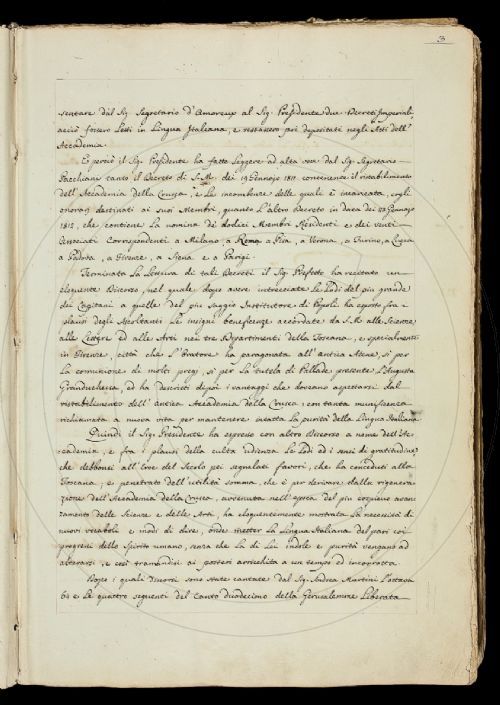 3
sentare dal Sig. Segretario d'Amoreux al Sig. Presidente due Decreti Imperiali,
acciò fossero Letti in Lingua Italiana, e restassero poi depositati negli Atti dell'
Accademia.
E perciò il Sig. Presidente ha fatto Leggere ad alta voce dal Sig. Segretario
Pacchiani tanto il Decreto di S. M. dei 19 Gennajo 1811 concernente il ristabilimento
dell'Accademia della Crusca, e Le incombenze delle quali è incaricata, cogli
onorarj destinati ai suoi Membri, quanto L'altro Decreto in data dei 23 Gennajo
1812, che contiene La nomina di dodici Membri Residenti e dei venti
Associati Corrispondenti a Milano, a Roma, a Pisa, a Verona, a Turino, a Lucca
a Padova, a Firenze, a Siena e a Parigi.
Terminata La Lettura di tali Decreti il Sig. Prefetto ha recitato un
eloquente Discorso, nel quale dopo avere intrecciate Le Lodi del più grande
dei Capitani a quelle del più saggio Institutore di Popoli ha esposto fra i
plausi degli Ascoltanti Le insigni beneficenze accordate da S. M. alle Scienze
alle Lettere ed alle Arti nei tre Dipartimenti della Toscana, e specialmente
in Firenze, città che L'Oratore ha paragonata all'antica Atene, sì per
La comunione di molti pregj, sì per La tutela di Pallade presente L'Augusta
Granduchessa, ed ha descritti dipoi i vantaggi che doveano aspettarsi dal
ristabilimento dell'antica Accademia della Crusca, con tanta munificenza
richiamata a nuova vita per mantenere intatta La purità della Lingua Italiana.
Quindi il Sig. Presidente ha espresso con altro Discorso a nome dell'Ac-
cademia, e fra i plausi della culta udienza Le Lodi ed i sensi di gratitudine,
che debbonsi all'Eroe del Secolo pei segnalati favori, che ha conceduti alla
Toscana; e penetrato dell'utilità somma, che è per derivare dalla rigenera-
zione dell'Accademia della Crusca, avvenuta nell'epoca del più copioso avan-
zamento delle Scienze e delle Arti, ha eloquentemente mostrata La necessità di
nuovi vocaboli e modi di dire, onde metter La Lingua Italiana del pari coi
progressi dello Spirito umano, senza che La di Lei indole e purità vengano ad
alterarsi, e così tramandisi ai posteri arricchita a un tempo ed incorrotta.
Dopo i quali Discorsi sono state cantate dal Sig. Andrea Martini L'ottava
60 e Le quattro seguenti del Canto duodecimo della Gerusalemme Liberata